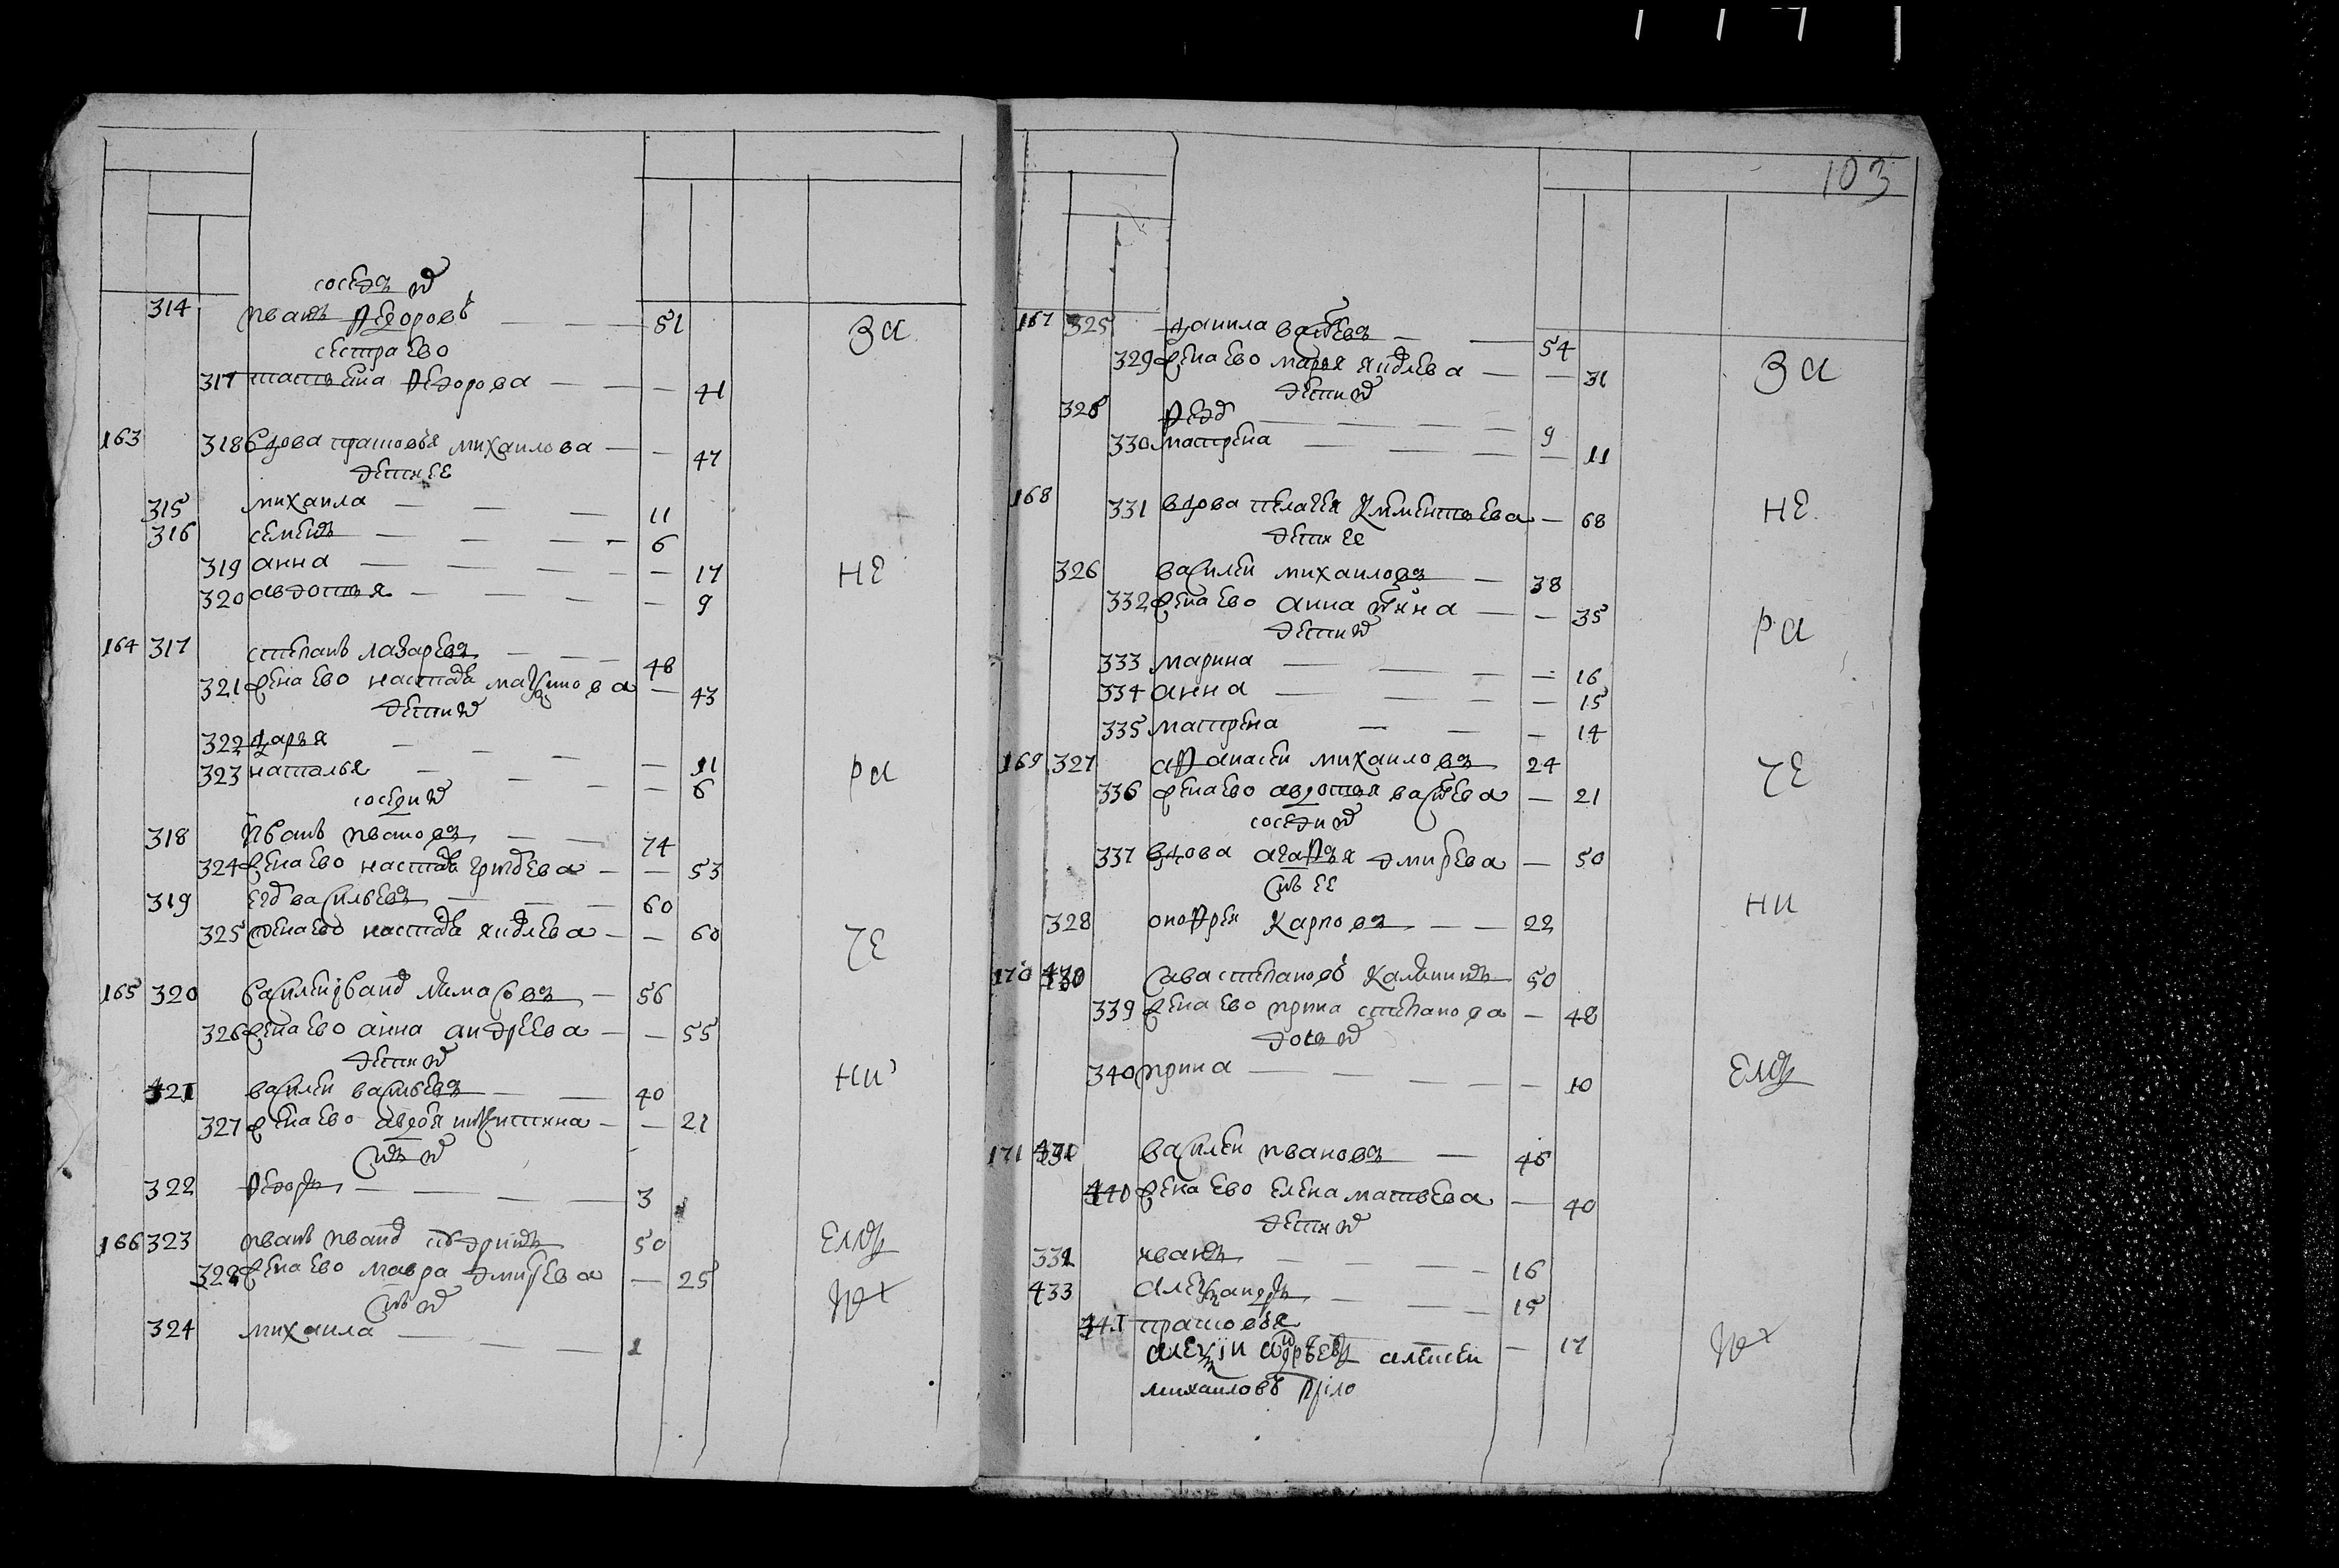 103
сосед ево
314 иванъ федоровъ 51 за
сестра ево
317 татьяна федорова 41
163 318 вдова прасковья михаилова 47
дети ее
315 михаила 11
316 семенъ 6
319 анна 17 не
320 авдотья 9
164 317 степанъ лазаревъ 48
321 жена ево настасья максимова 43
дети ево
322 дарья 11
323 наталья 6 ра
соседи ево
318 иванъ ивановъ 74
324 жена ево настасья григорьева 53
319 егор васильевъ 60
325 жена ево настасья яковлева 60 че
165 320 василеи иванов 56
326 жена ево анна андреева 55
дети ево
321 василеи васильевъ 40 ни
327 жена ево авдотья никитина 21
сынъ ево
322 федоръ 3
166 323 иванъ иванов 50 елѣ
328 жена ево мавра дмитрева 25
сынъ ево
324 михаила 1
167 325 данила васильевъ 54
329 жена ево марья яковлева 31 за
дети ево
326 федор 9
330 матрена 11
168 331 вдова пелагея климентьева 68 не
дети ее
326 василеи михаиловъ 38
332 жена ево анна 35
дети ево ра
333 марина 16
334 анна 15
335 матрена 14
169 327 афанасеи михаиловъ 24 че
336 жена ево авдотья васильева 21
соседи ево
337 вдова агафья дмитрева 50
сынъ ее
328 онофреи карповъ 22 ни
170 330 сава степановъ калининъ 50
339 жена ево ирина степанова 48
дочь ево
340 ирина 10 елѣ
171 331 василеи ивановъ 45
440 жена ево елена матвева 40
дети ево
332 иванъ 16
433 александръ 15
341 прасковья 17
алексіи алексеи
михаиловъ